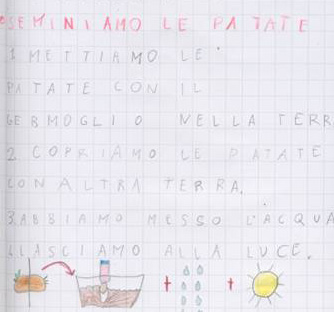 SEMINIAMO LE PATATE
1 METTIAMO LE
PATATE CON IL
GERMOGLIO NELLA TERR
2 COPRIAMO LE PATATE
CON ALTRA TERRA.
3 ABBIAMO MESSO L'ACQUA
4 LASCIAMO ALLA LUCE.